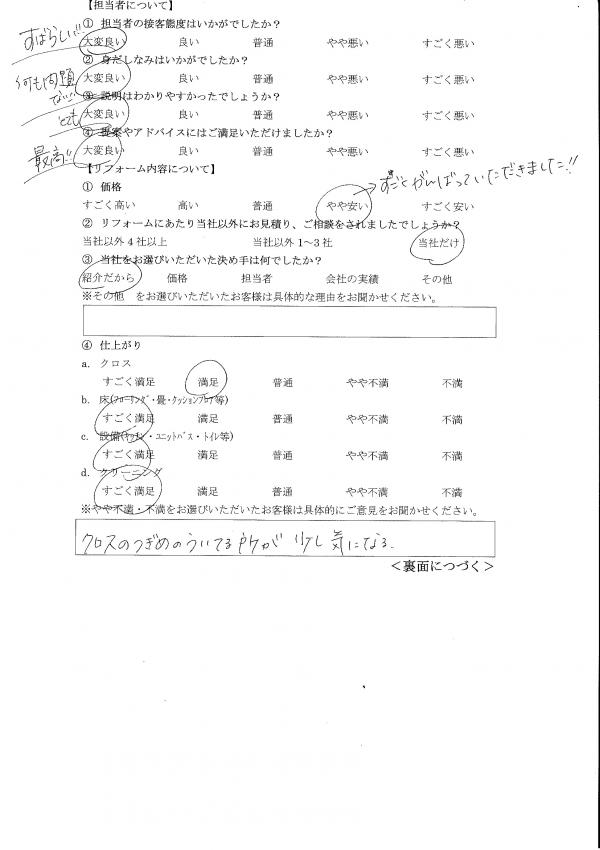 【担当者について】
① 担当者の接客態度はいかがでしたか？
すばらしい!!
大変良い 良い 普通 やや悪い すごく悪い
② 身だしなみはいかがでしたか？
何も問題ない!!
大変良い 良い 普通 やや悪い すごく悪い
③ 説明はわかりやすかったでしょうか？
とても
大変良い 良い 普通 やや悪い すごく悪い
④ 提案やアドバイスにはご満足いただけましたか？
最高!!
大変良い 良い 普通 やや悪い すごく悪い
【リフォーム内容について】
① 価格
→すごくがんばっていただきました!!
すごく高い 高い 普通 やや安い すごく安い
② リフォームにあたり当社以外にお見積り、ご相談をされましたでしょうか？
当社以外 4 社以上 当社以外 1～3 社 当社だけ
③ 当社をお選びいただいた決め手は何でしたか？
紹介だから 価格 担当者 会社の実績 その他
※その他 をお選びいただいたお客様は具体的な理由をお聞かせください。
④ 仕上がり
a. クロス
すごく満足 満足 普通 やや不満 不満
b. 床(ﾌﾛｰﾘﾝｸﾞ・畳・ｸｯｼｮﾝﾌﾛｱ等)
すごく満足 満足 普通 やや不満 不満
c. 設備(ｷｯﾁﾝ・ﾕﾆｯﾄﾊﾞｽ・ﾄｲﾚ等)
すごく満足 満足 普通 やや不満 不満
d. クリーニング
すごく満足 満足 普通 やや不満 不満
※やや不満・不満をお選びいただいたお客様は具体的にご意見をお聞かせください。
クロスのつぎめのういてる所が少し気になる.
＜裏面につづく＞